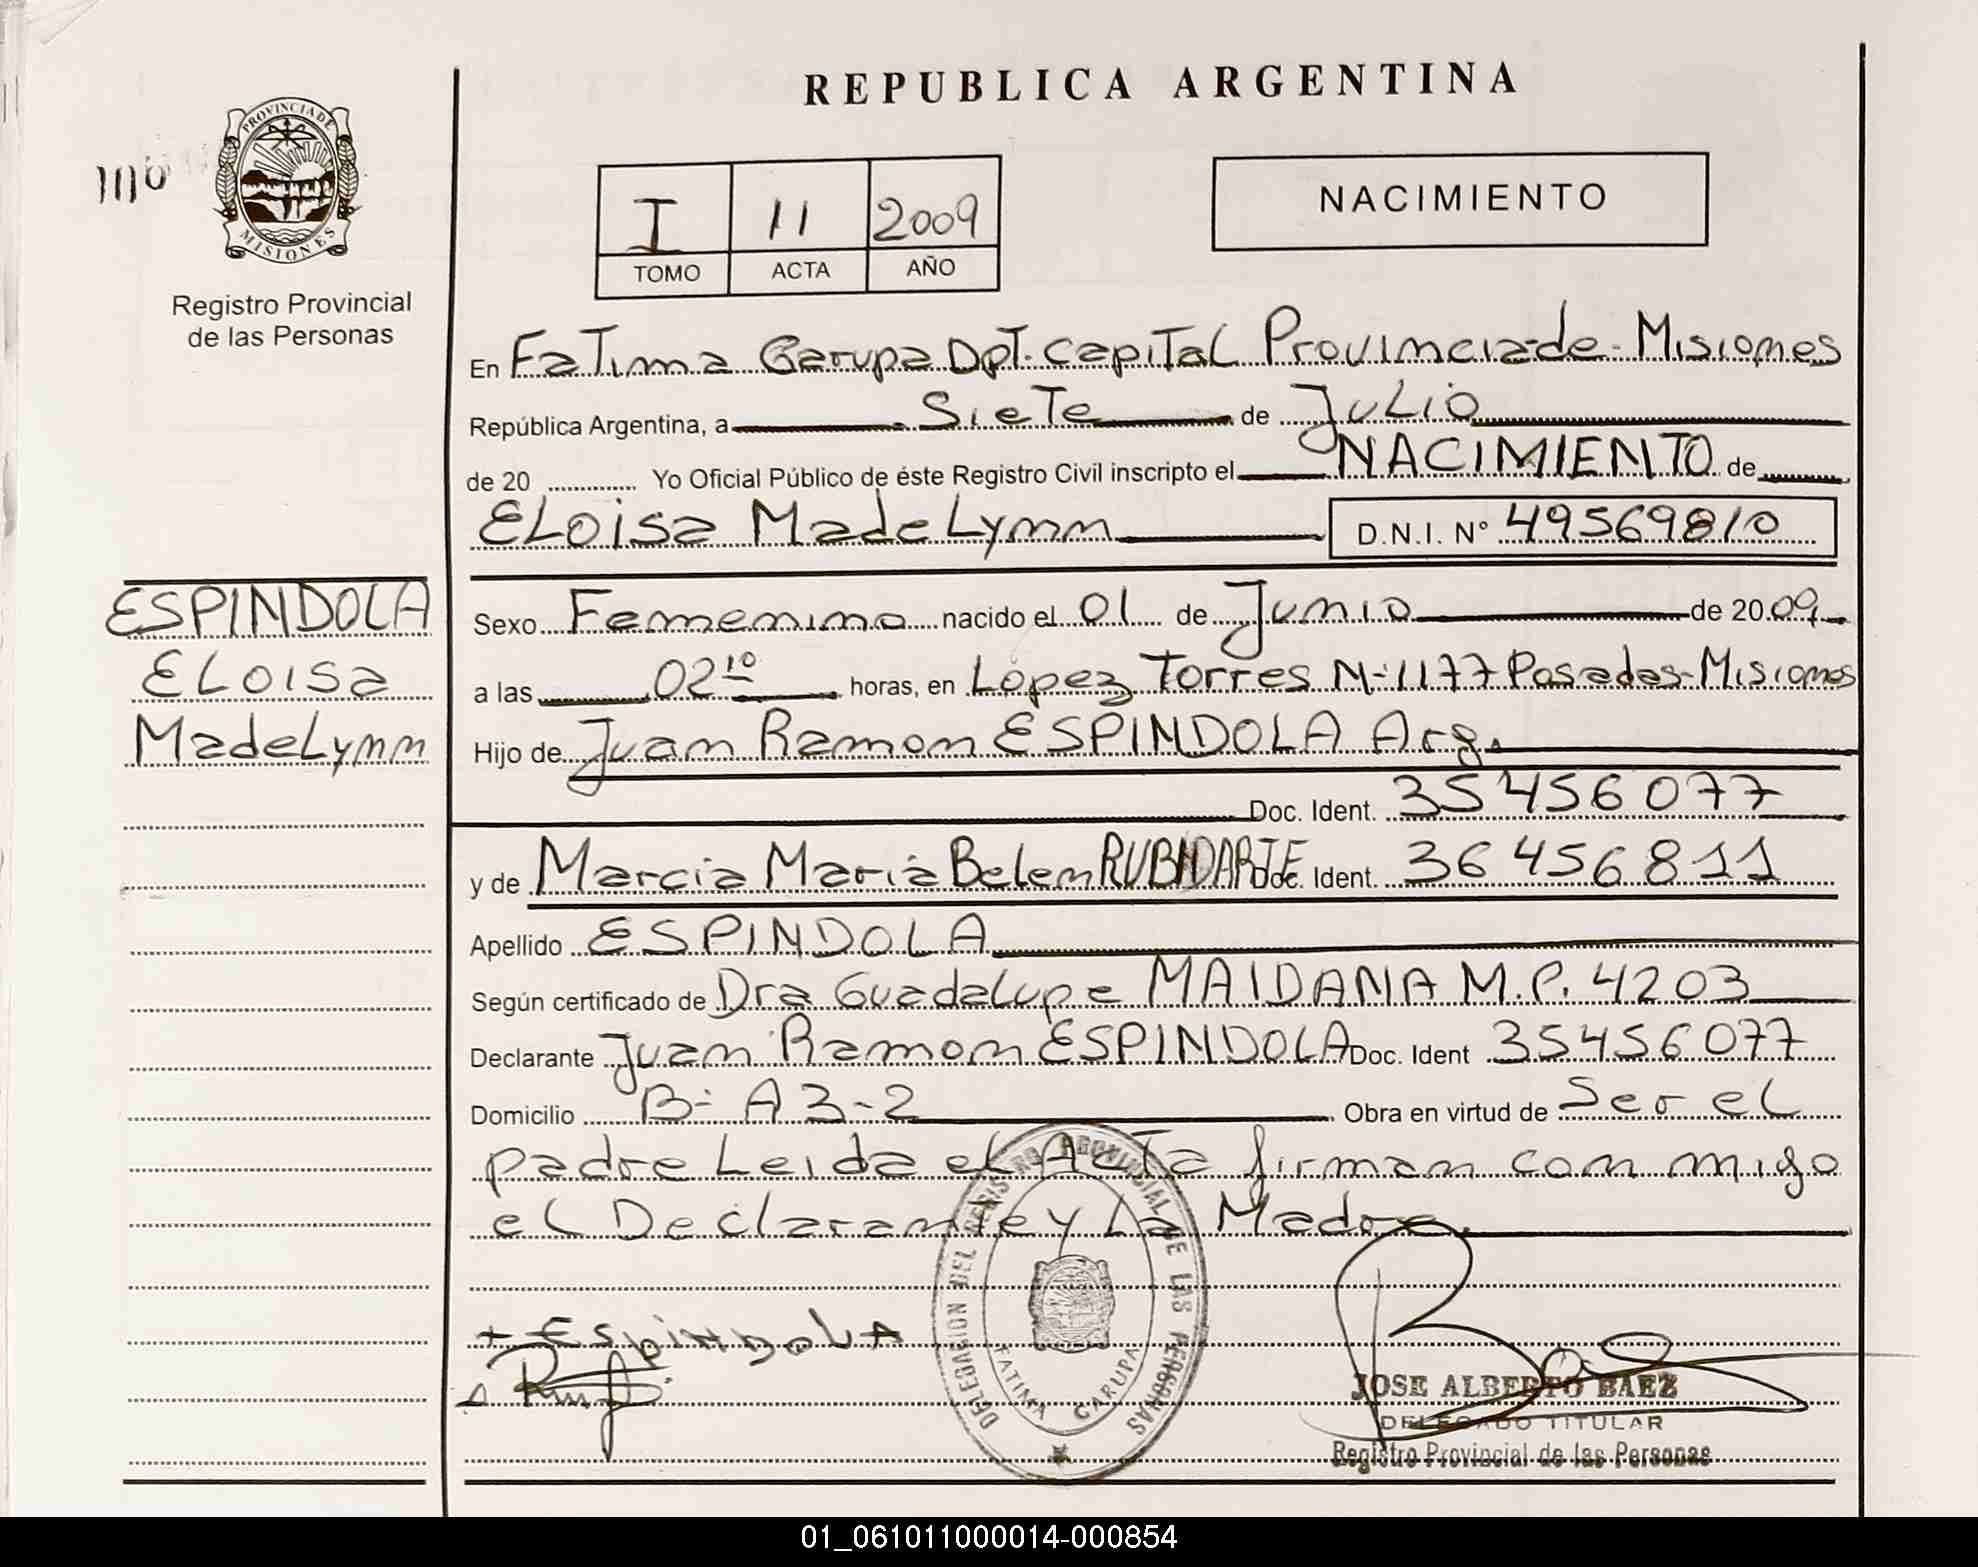 REPUBLICA ARGENTINA
PROVINCIA DE
MISIONES
Registro Provincial
de las Personas
I 11 2009
TOMO ACTA AÑO
NACIMIENTO
En Fatima Garupa Dpt. Capital Provincia de - Misiones
República Argentina, a Siete de Julio
de 20 ............ Yo Oficial Público de éste Registro Civil inscripto el NACIMIENTO de
ELoisa MadeLynn D.N.I. Nº 49569810
ESPINDOLA
ELoisa
MadeLynn
Sexo Femenino nacido el 01 de Junio de 2009
a las 02 10 horas, en López Torres N-1177 Posadas-Misiones
Hijo de Juan Ramon ESPINDOLA Arg.
Doc. Ident. 35456077
y de Marcia Maria Belen Doc. Ident. 36456811
Apellido ESPINDOLA
Según certificado de Dra Guadalupe MAIDANA M.P. 4203
Declarante Juan Ramon ESPINDOLA Doc. Ident 35456077
Domicilio B- A3-2 Obra en virtud de Ser el
padre Leida el Acta firman con migo
el Declarante y La Madre.
+ EspindoLA
DELEGACION DEL REGISTRO PROVINCIAL DE LAS PERSONAS
FATIMA GARUPA
JOSE ALBERTO BAEZ
DELEGADO TITULAR
Registro Provincial de las Personas
01_061011000014-000854